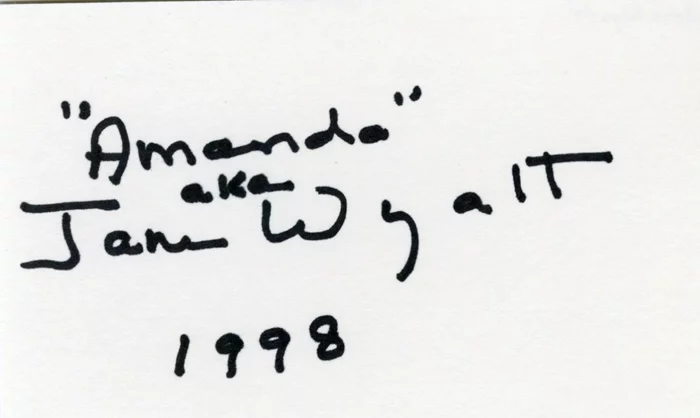 "Amanda"
aka
Jane Wyatt
1998